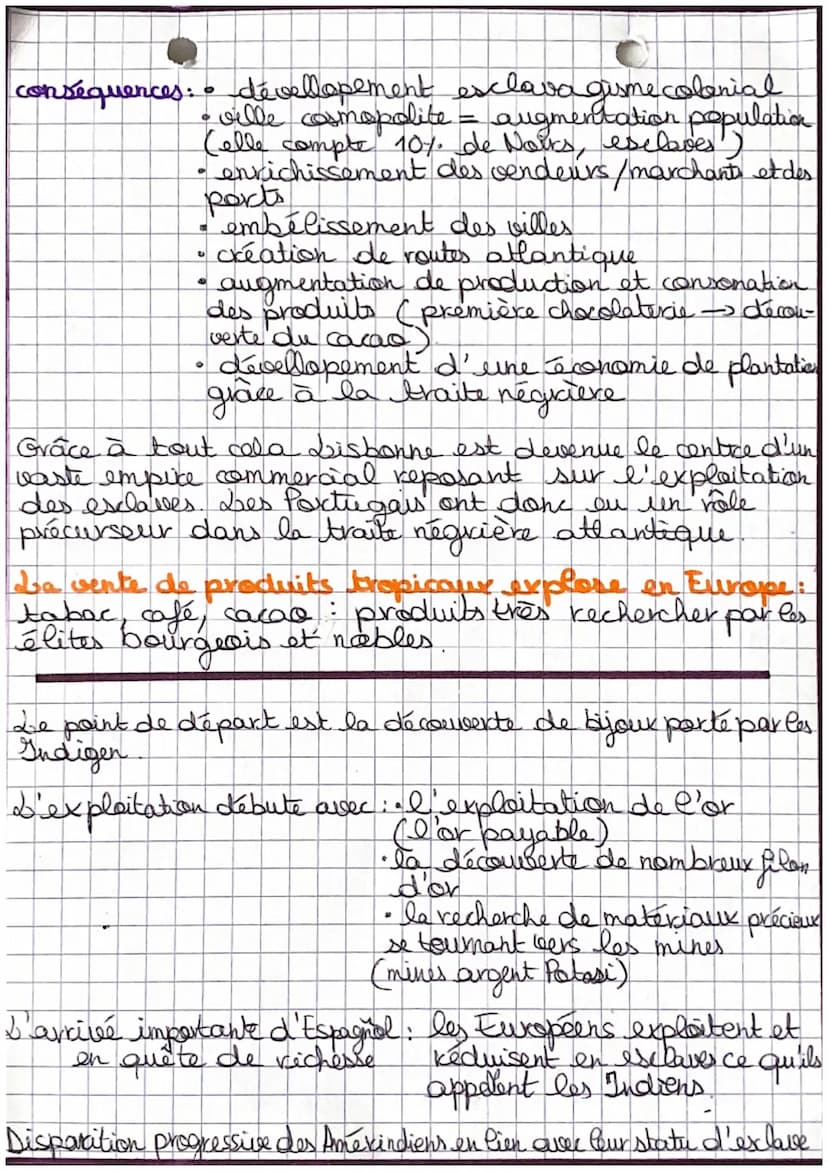 conséquences: • dévellopement esclavagisme colonial
• ville cosmopolite = augmentation population
(elle compte 10% de Noirs, esclaves)
• enrichissement des vendeurs/marchants et des
ports
• embélissement des villes
• création de routes atlantique
• augmentation de production et consonation
des produits (première chocolaterie → décou-
verte du cacao)
• dévellopement d'une économie de plantation
grâce à la traite négrière
Grâce à tout cela Lisbonne est devenue le centre d'un
vaste empire commercial reposant sur l'exploitation
des esclaves. Les Portugais ont donc eu un rôle
précurseur dans la traite négrière atlantique.
La vente de produits tropicaux explose en Europe:
tabac, café, cacao : produits très rechercher par les
élites bourgeois et nobles.
Le point de départ est la découverte de bijoux porté par les
Indigen.
L'exploitation débute avec : • l'exploitation de l'or
(l'or payable)
• la découverte de nombreux filon
d'or
• la recherche de matériaux précieux
se tournant vers les mines
(mines argent Potosi)
L'arrivé importante d'Espagnol : les Européens exploitent et
en quête de richesse réduisent en esclaves ce qu'ils
appelent les Indiens.
Disparition progressive des Amérindiens en lien avec leur statu d'esclave